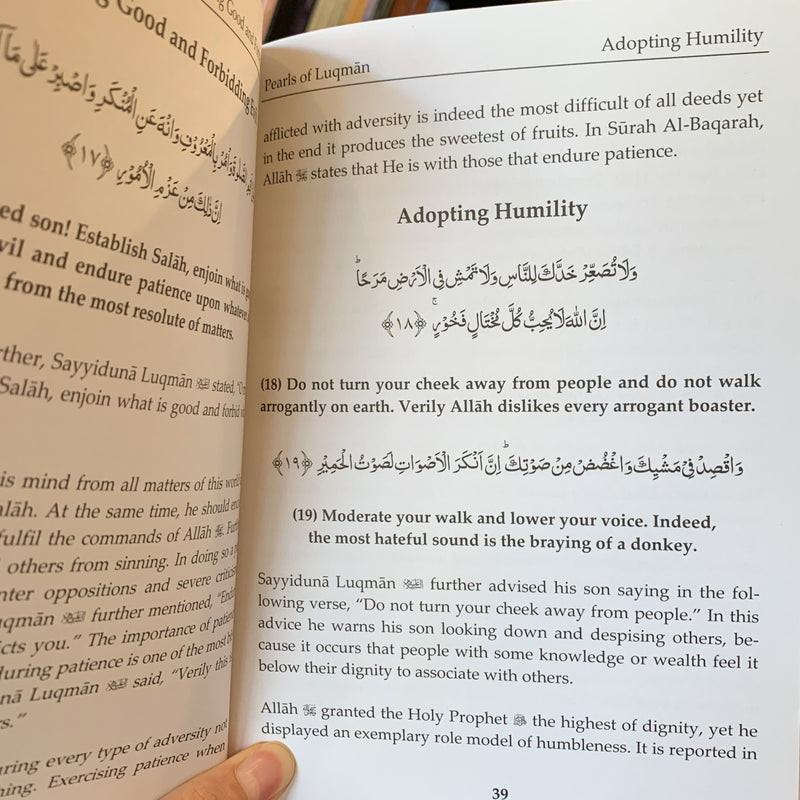 ng Good and
ng Good and Forbidding Evil
الْمُنْكَرِ وَاصْبِرْ عَلٰى مَآ
وَأْمُرْ بِالْمَعْرُوْفِ وَانْهَ عَنِ
اِنَّ ذٰلِكَ مِنْ عَزْمِ الْاُمُوْرِ ﴿١٧﴾
ed son! Establish Salāh, enjoin what is
vil and endure patience upon whatever
from the most resolute of matters.
rther, Sayyidunā Luqmān stated,
Salāh, enjoin what is good and forbid
is mind from all matters of this world
alāh. At the same time, he should
fulfil the commands of Allāh ﷻ
others from sinning. In doing so a
nter oppositions and severe criticism
uqmān further mentioned,
icts you." The importance of patience
during patience is one of the most
nā Luqmān said, "Verily this
rs."
uring every type of adversity not
hing. Exercising patience when
Pearls of Luqmān
Adopting Humility
afflicted with adversity is indeed the most difficult of all deeds yet
in the end it produces the sweetest of fruits. In Sūrah Al-Baqarah,
Allāh ﷻ states that He is with those that endure patience.
Adopting Humility
وَلَا تُصَعِّرْ خَدَّكَ لِلنَّاسِ وَلَا تَمْشِ فِى الْاَرْضِ مَرَحًا ؕ
اِنَّ اللّٰهَ لَا يُحِبُّ كُلَّ مُخْتَالٍ فَخُوْرٍ ۚ ﴿١٨﴾
(18) Do not turn your cheek away from people and do not walk
arrogantly on earth. Verily Allāh dislikes every arrogant boaster.
وَاقْصِدْ فِىْ مَشْيِكَ وَاغْضُضْ مِنْ صَوْتِكَ ؕ اِنَّ اَنْكَرَ الْاَصْوَاتِ لَصَوْتُ الْحَمِيْرِ ﴿١٩﴾
(19) Moderate your walk and lower your voice. Indeed,
the most hateful sound is the braying of a donkey.
Sayyidunā Luqmān further advised his son saying in the fol-
lowing verse, "Do not turn your cheek away from people." In this
advice he warns his son looking down and despising others, be-
cause it occurs that people with some knowledge or wealth feel it
below their dignity to associate with others.
Allāh ﷻ granted the Holy Prophet ﷺ the highest of dignity, yet he
displayed an exemplary role model of humbleness. It is reported in
39